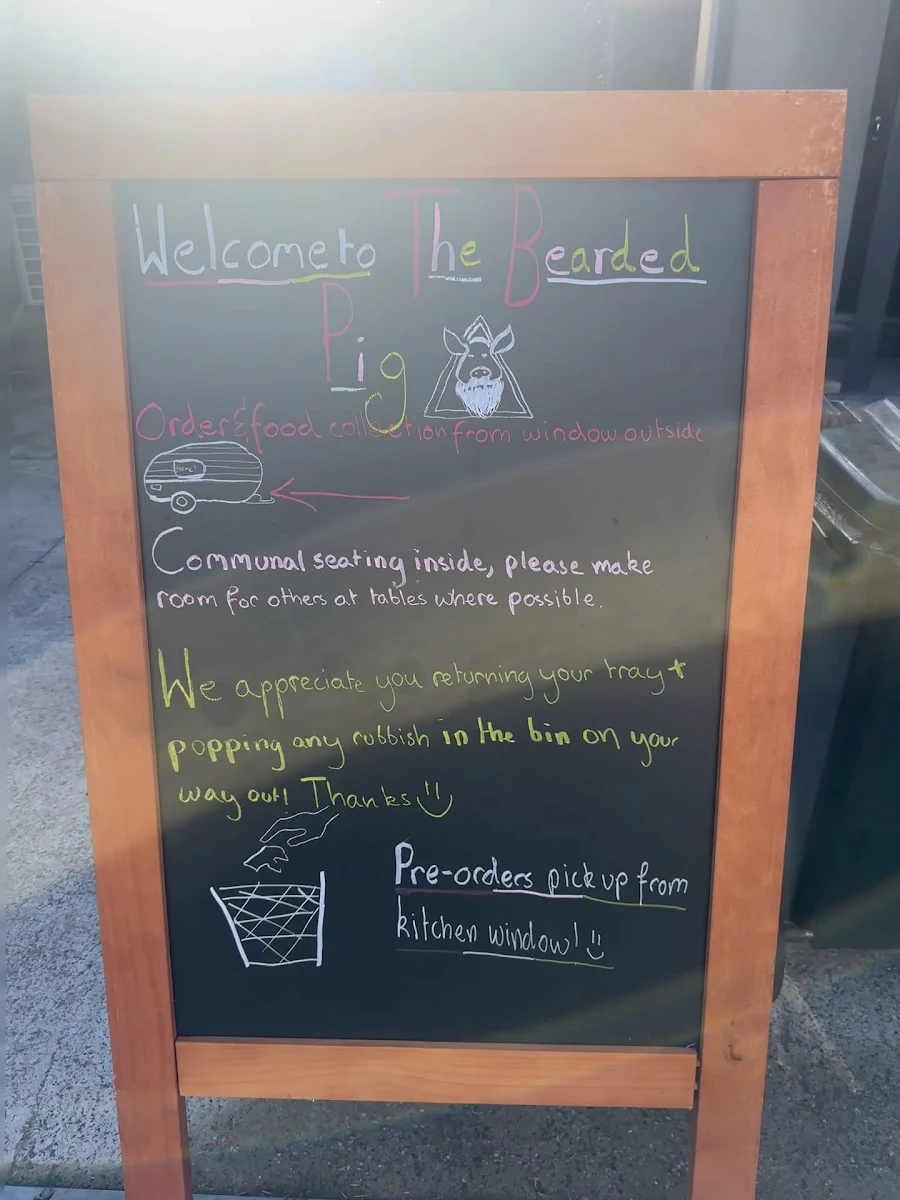 Welcome to The Bearded
Pig
Order & food collection from window outside
Here!
Communal seating inside, please make
room for others at tables where possible.
We appreciate you returning your tray +
popping any rubbish in the bin on your
way out! Thanks
Pre-orders pick up from
kitchen window!